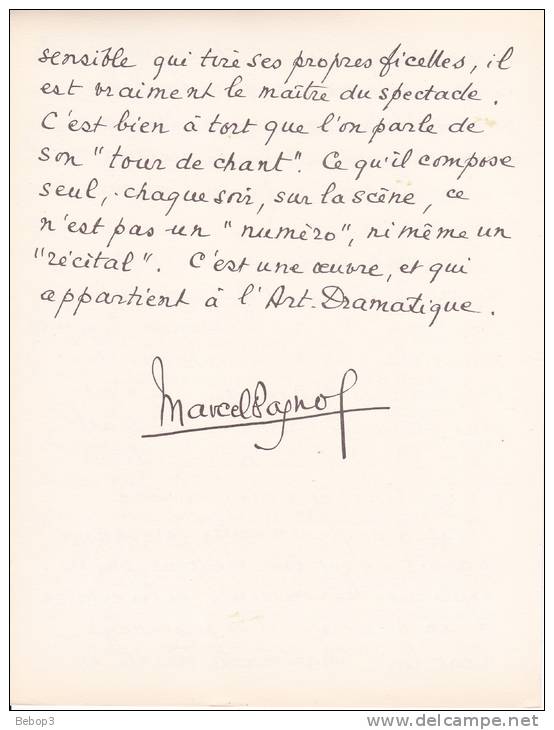 sensible qui tire ses propres ficelles, il
est vraiment le maître du spectacle.
C'est bien à tort que l'on parle de
son "tour de chant". Ce qu'il compose
seul, chaque soir, sur la scène, ce
n'est pas un "numéro", ni même un
"récital". C'est une œuvre, et qui
appartient à l'Art Dramatique.
Marcel Pagnol
Bebop3
www.delcampe.net